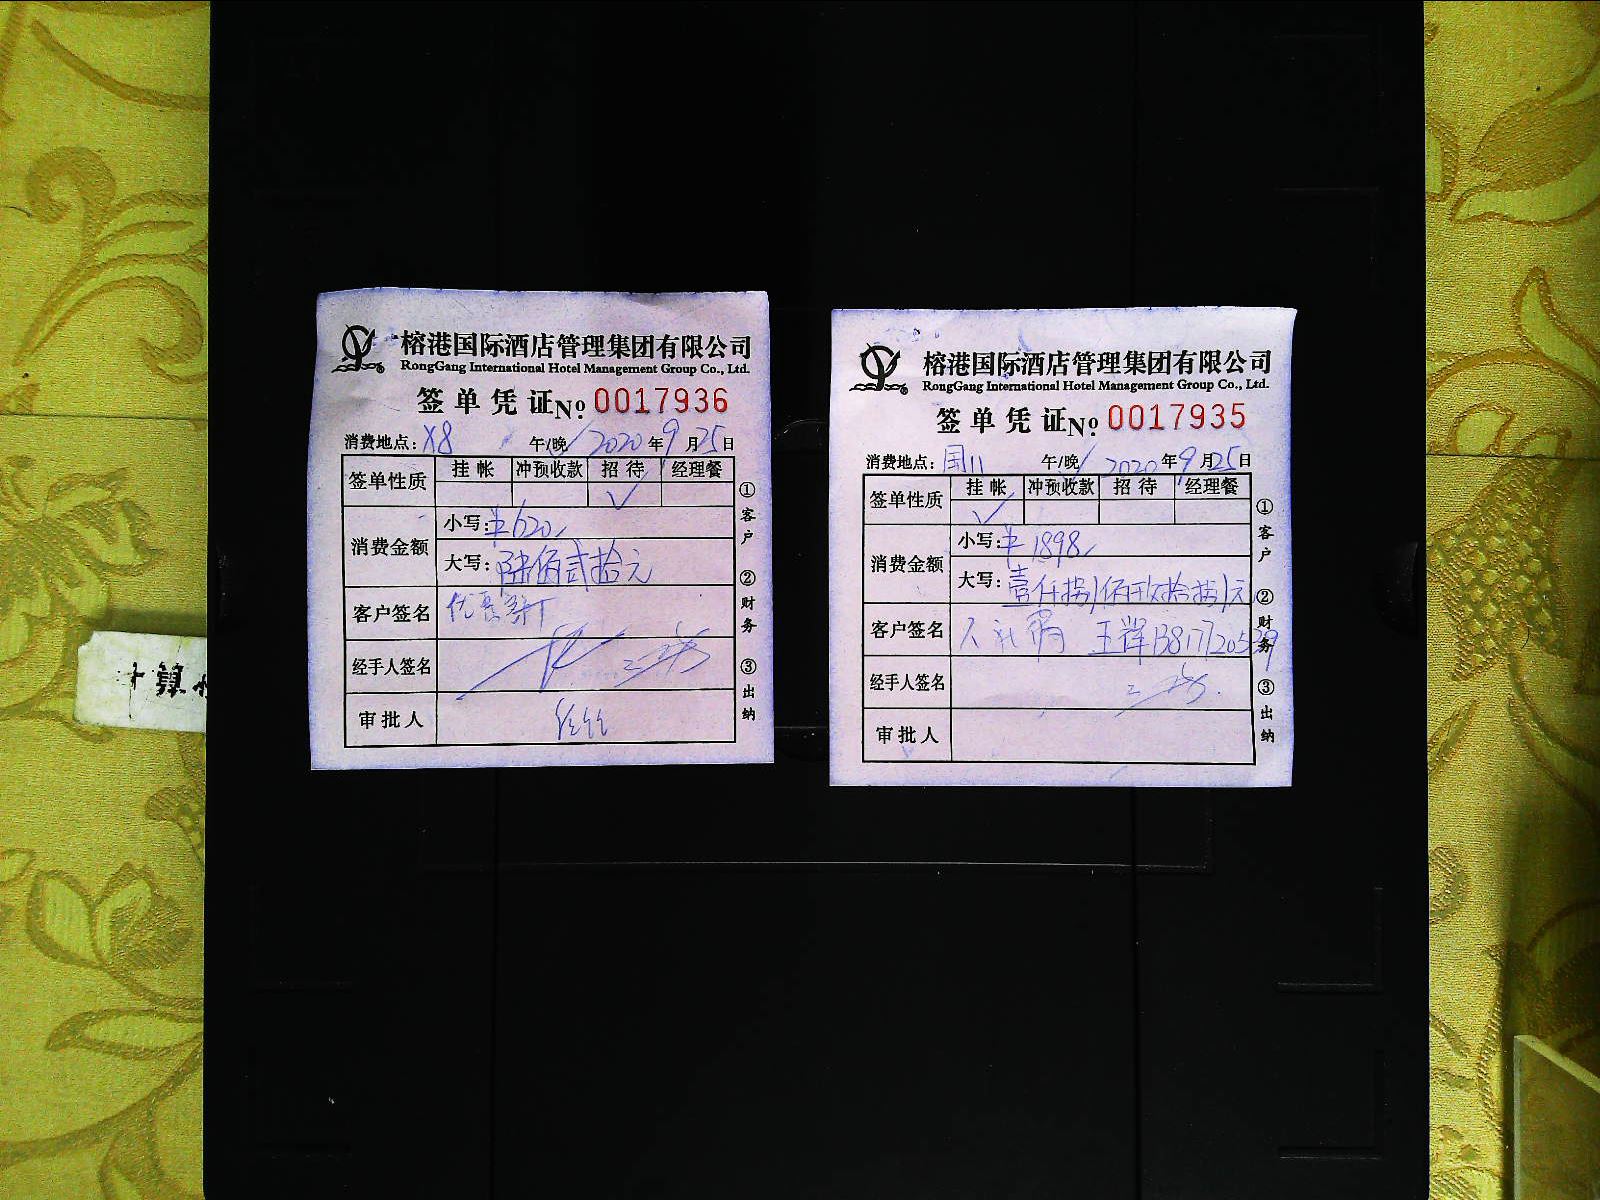 榕港国际酒店管理集团有限公司
RongGang International Hotel Management Group Co., Ltd.
签单凭证 No 0017936
消费地点: X8 午/晚 2020年9月25日
签单性质 挂帐 冲预收款 招待 经理餐
✓
消费金额 小写: ¥620
大写: 陆佰贰拾元
客户签名
经手人签名
审批人
①客户 ②财务 ③出纳
榕港国际酒店管理集团有限公司
RongGang International Hotel Management Group Co., Ltd.
签单凭证 No 0017935
消费地点: 国11 午/晚 2020年9月25日
签单性质 挂帐 冲预收款 招待 经理餐
✓
消费金额 小写: ¥1898
大写: 壹仟捌佰玖拾捌元
客户签名 王辉
经手人签名
审批人
①客户 ②财务 ③出纳